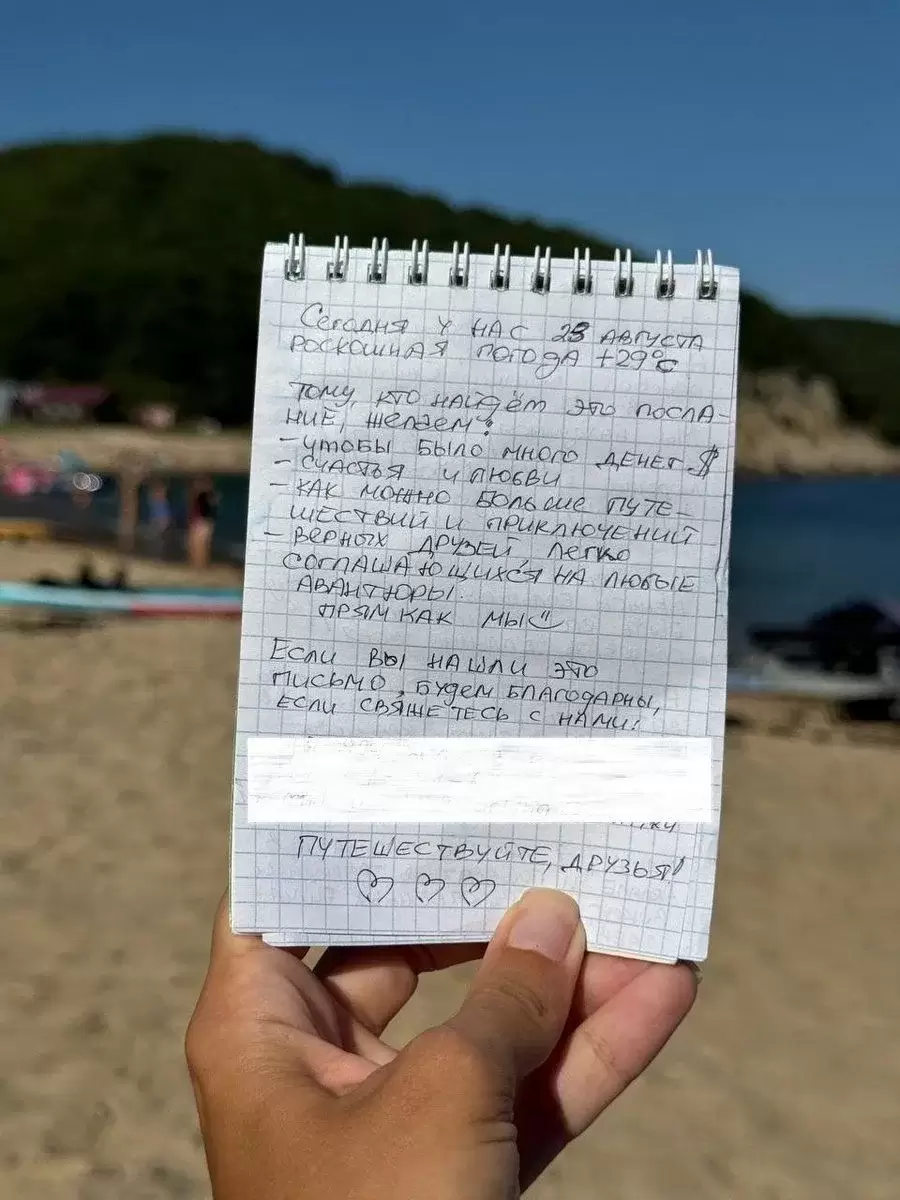 Сегодня у нас 28 августа
роскошная погода +29°с
Тому, кто найдём это посла-
ние, желаем:
- чтобы было много денег $
- счастья и любви
- как можно больше путе-
шествий и приключений
- верных друзей, легко
соглашающихся на любые
авантюры.
прям как мы
Если вы нашли это
письмо, будем благодарны,
если свяжетесь с нами:
Путешествуйте, друзья!